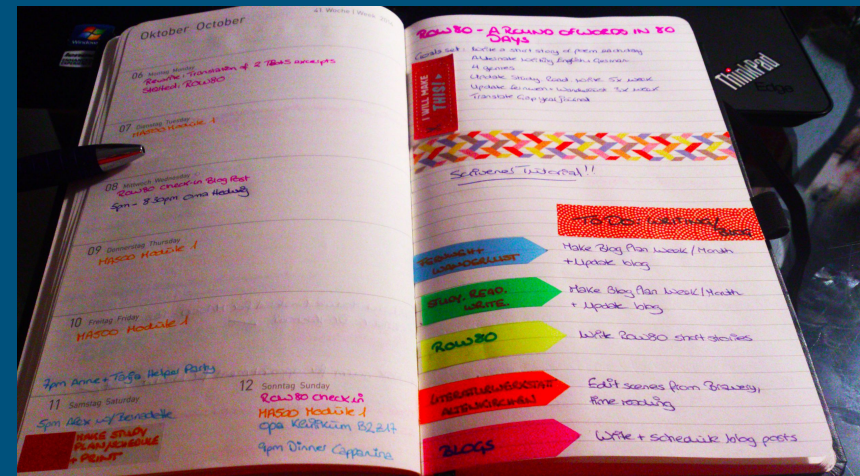 Oktober October
41. Woche | Week
06 Montag Monday
Rewrite, Translation of 2 excerpts
Started: ROW80
07 Dienstag Tuesday
MA500 Module 1
08 Mittwoch Wednesday
ROW80 check-in Blog Post
5pm - 8:30pm Oma Hedwig
09 Donnerstag Thursday
MA500 Module 1
10 Freitag Friday
MA500 Module 1
7pm Anne + Tanja Helper Party
11 Samstag Saturday
5pm Alex w/ Bernadette
MAKE STUDY
PLAN/SCHEDULE
+ PRINT
12 Sonntag Sunday
ROW80 check in
MA500 Module 1
Opa Klinikum
9pm Dinner
ROW80 - A ROUND OF WORDS IN 80
DAYS
Goals set: Write a short story or poem
Alternate writing English + German
4 games
Update Study. Read. Write. 3x week
Update Fernweh + Wanderlust 3x week
Translate
I WILL MAKE
THIS!
Scrivener Tutorial!!
TO DO: WRITING/
BLOG
FERNWEH +
WANDERLUST
Make Blog Plan Week/Month
+ Update blog
STUDY. READ.
WRITE.
Make Blog Plan Week/Month
+ Update blog
ROW80
Write ROW80 short stories
LITERATURWERKSTATT
ALTENKIRCHEN
Edit scenes from
time reading
BLOGS
Write + schedule blog posts
Windows
ThinkPad
Edge